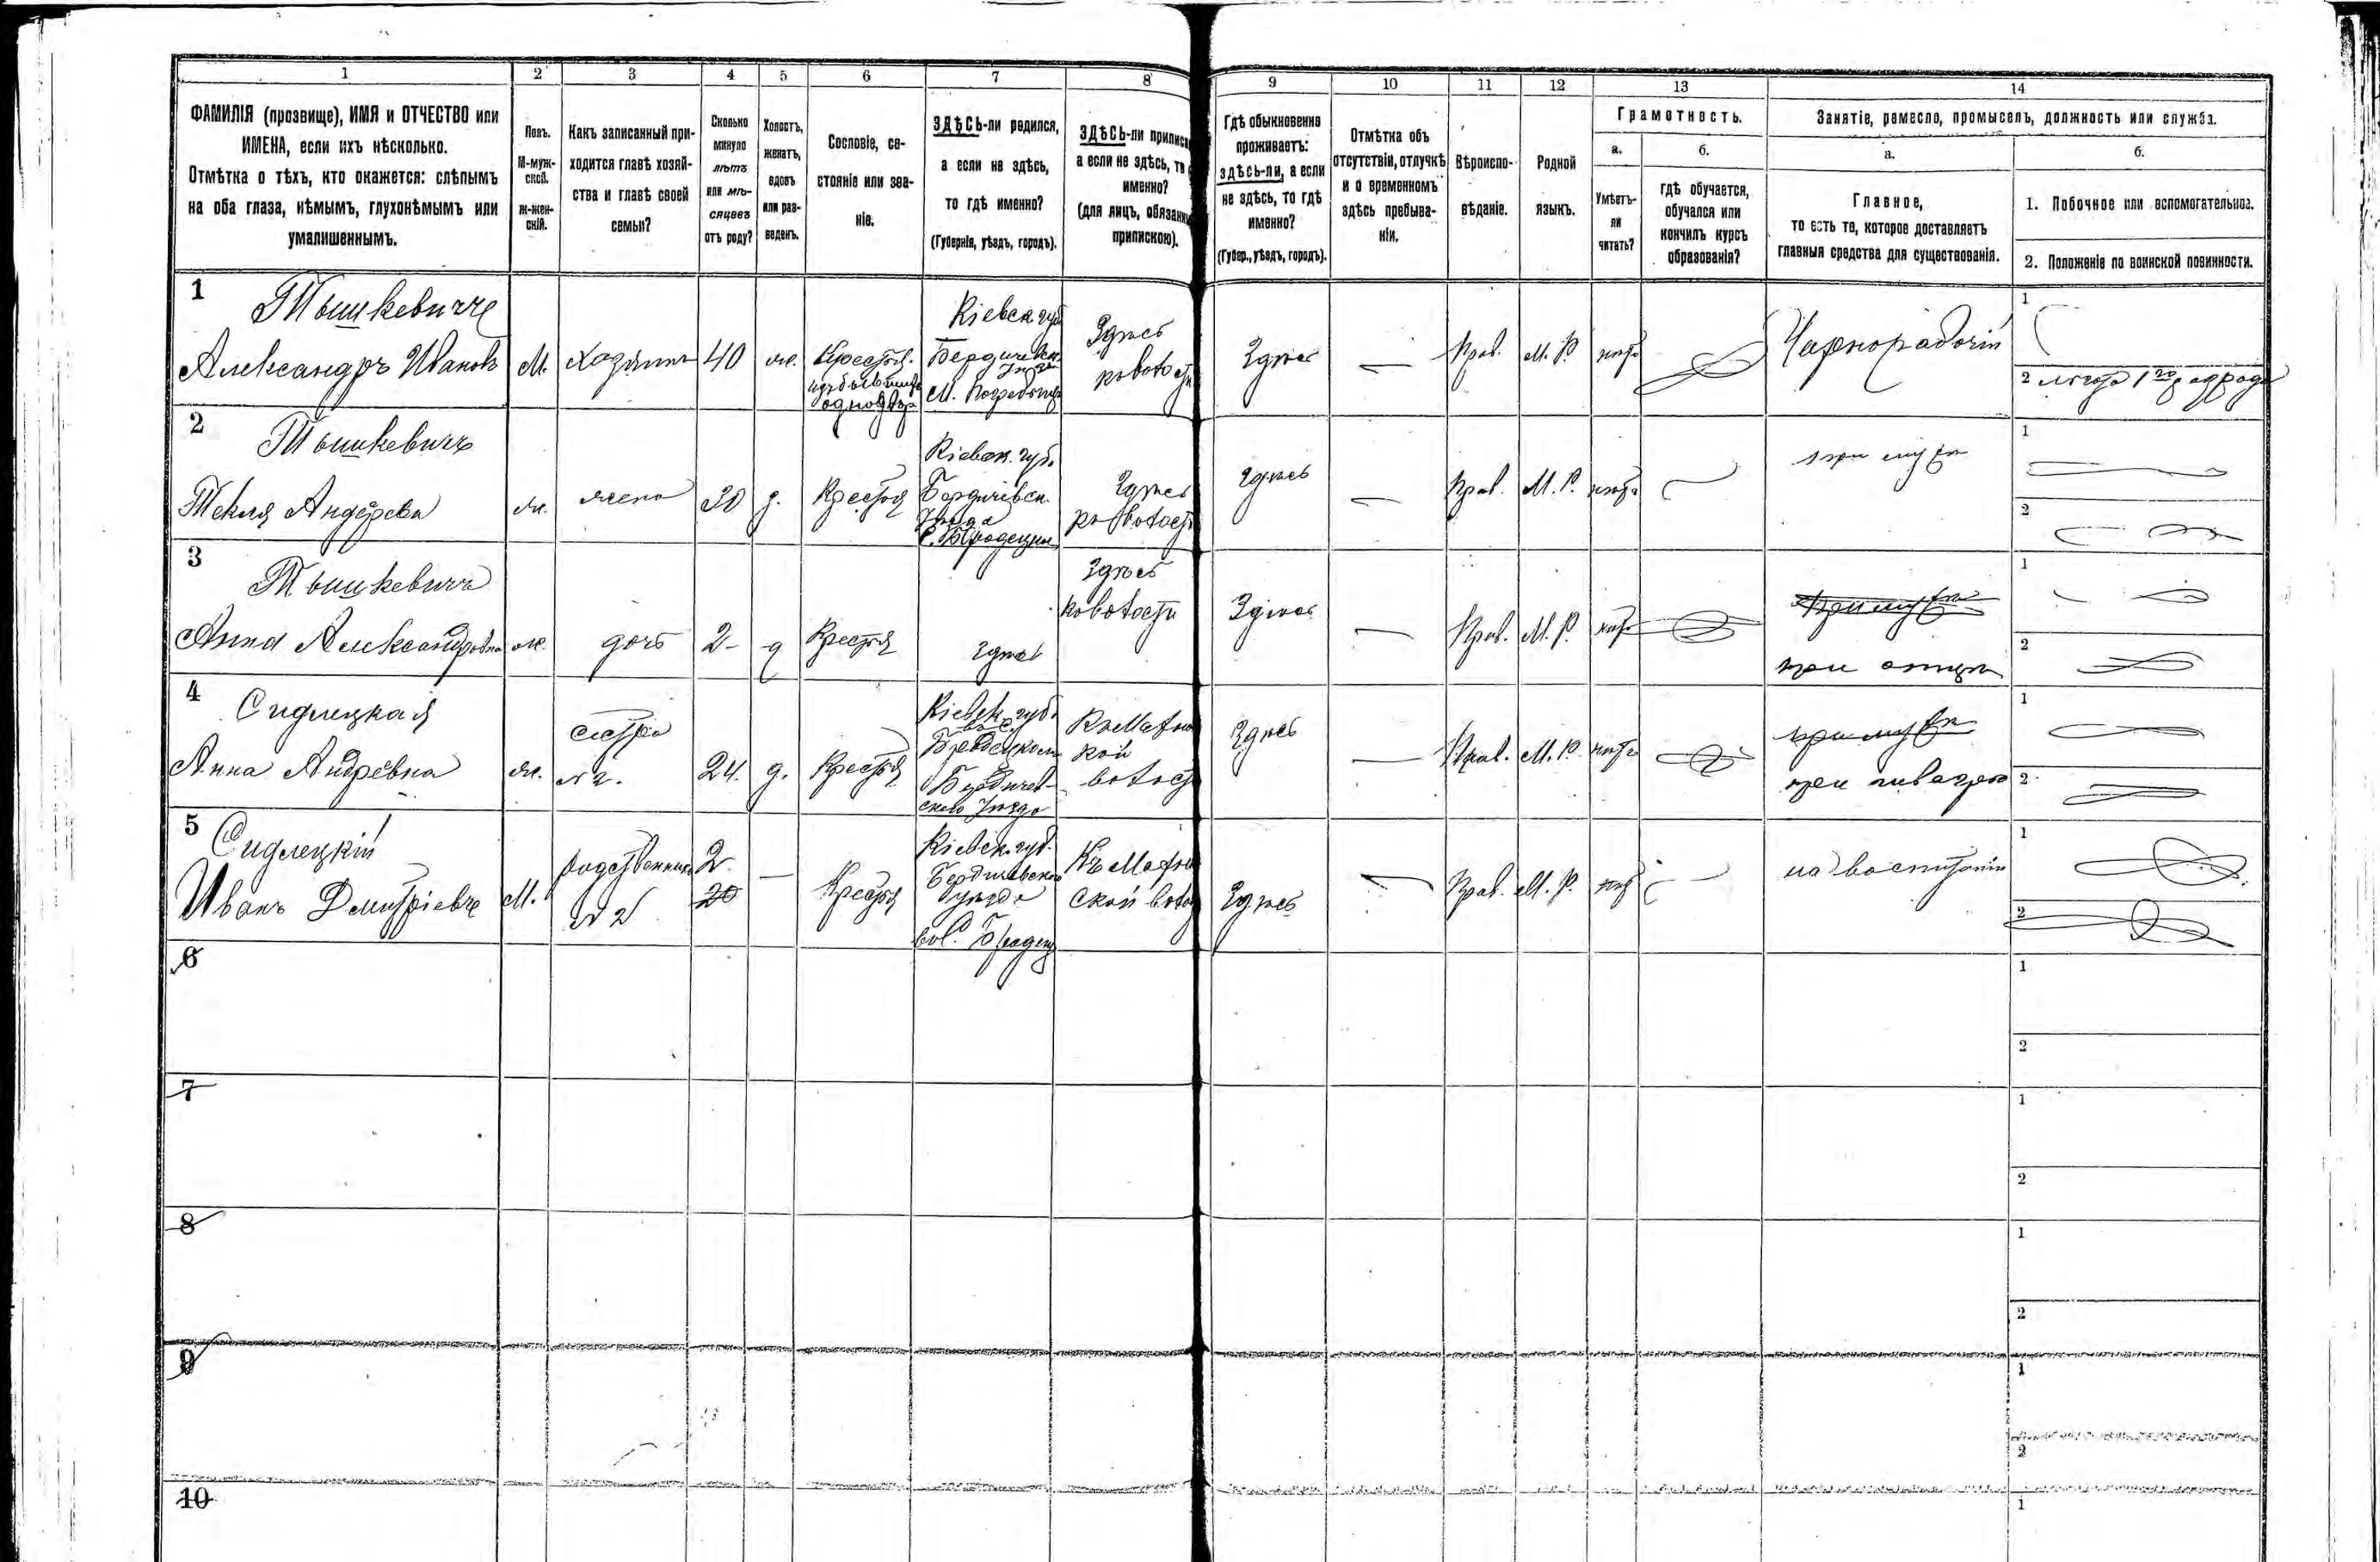 1 2 3 4 5 6 7 8 9 10 11 12 13 14
ФАМИЛІЯ (прозвище), ИМЯ и ОТЧЕСТВО или
ИМЕНА, если ихъ нѣсколько.
Отмѣтка о тѣхъ, кто окажется: слѣпымъ
на оба глаза, нѣмымъ, глухонѣмымъ или
умалишеннымъ.
Полъ.
М-муж-
ской.
Ж-жен-
скій.
Какъ записанный при-
ходится главѣ хозяй-
ства и главѣ своей
семьи?
Сколько
минуло
лѣтъ
или мѣ-
сяцевъ
отъ роду?
Холостъ,
женатъ,
вдовъ
или раз-
веденъ.
Сословіе, со-
стояніе или зва-
ніе.
ЗДѢСЬ-ли родился,
а если не здѣсь,
то гдѣ именно?
(Губернія, уѣздъ, городъ).
ЗДѢСЬ-ли приписа
а если не здѣсь, то
именно?
(для лицъ, обязанн
припискою).
Гдѣ обыкновенно
проживаетъ:
здѣсь-ли, а если
не здѣсь, то гдѣ
именно?
(Губер., уѣздъ, городъ).
Отмѣтка объ
отсутствіи, отлучкѣ
и о временномъ
здѣсь пребыва-
ніи.
Вѣроиспо-
вѣданіе.
Родной
языкъ.
Грамотность.
а.
Умѣетъ-
ли
читать?
б.
гдѣ обучается,
обучался или
кончилъ курсъ
образованія?
Занятіе, ремесло, промыселъ, должность или служба.
а.
Главное,
то есть то, которое доставляетъ
главныя средства для существованія.
б.
1. Побочное или вспомогательное.
2. Положеніе по воинской повинности.
1
Тышкевичъ
Александръ Ивановъ
М.
Хозяинъ
40
ж.
Крестья.
изъ бывшихъ
однодвор
Кіевск губ
Бердичевск.
М. Погребище
Здѣсь
Здѣсь
Прав.
М. Р.
нѣтъ
Чернорабочій
1
2
2
Тышкевичъ
Текля Андреева
ж.
жена
30
з.
Крестья
Кіевск. губ.
Бердичевск.
уѣзда
Здѣсь
Здѣсь
Прав.
М. Р.
нѣтъ
при мужѣ
1
2
3
Тышкевичъ
Анна Александровна
ж.
дочь
2
д
Крестья
Здѣсь
Здѣсь
Здѣсь
Прав.
М. Р.
нѣтъ
при мужѣ
при отцѣ
1
2
4
Сидлецкая
Анна Андревна
ж.
сестра
№ 2.
24.
д.
Крестья
Кіевск. губ.
Бердичев-
скаго уѣзда
Здѣсь
Прав.
М. Р.
нѣтъ
при мужѣ
1
2
5
Сидлецкій
Иванъ Дмитріевъ
М.
родственникъ
№ 2
2
20
Крестья
Кіевск. губ.
Бердичевскаго
уѣзда
Здѣсь
Прав.
М. Р.
на воспитаніи
1
2
6
1
2
7
1
2
8
1
2
9
1
2
10
1